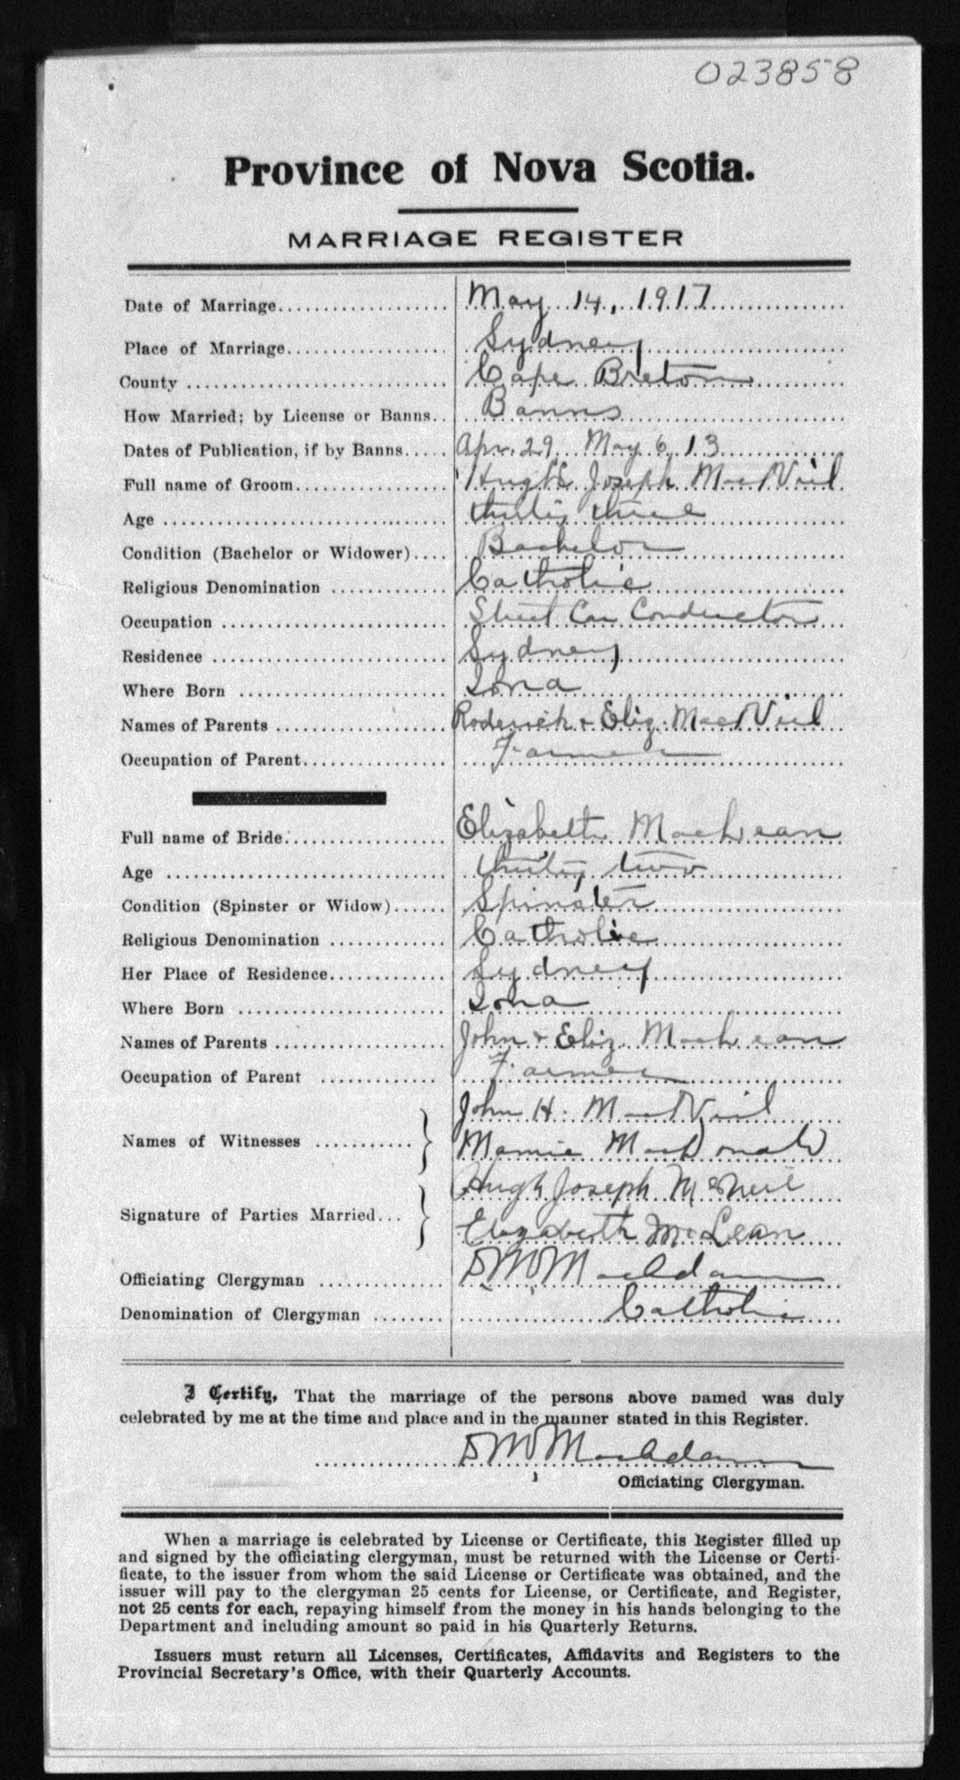 023858
Province of Nova Scotia.
MARRIAGE REGISTER
Date of Marriage.................... May 14, 1917
Place of Marriage.................. Sydney
County ............................ Cape Breton
How Married; by License or Banns.. Banns
Dates of Publication, if by Banns..... Apr. 29, May 6, 13
Full name of Groom................. Hugh Joseph MacNeil
Age .............................. thirty three
Condition (Bachelor or Widower).... Bachelor
Religious Denomination ............. Catholic
Occupation ......................... Street Car Conductor
Residence .......................... Sydney
Where Born ....................... Iona
Names of Parents ................... Roderick & Eliz. MacNeil
Occupation of Parent................ Farmer
Full name of Bride.................. Elizabeth MacLean
Age .............................. thirty two
Condition (Spinster or Widow)...... Spinster
Religious Denomination ............. Catholic
Her Place of Residence............. Sydney
Where Born ....................... Iona
Names of Parents ................... John & Eliz. MacLean
Occupation of Parent .............. Farmer
Names of Witnesses ........... } John H. MacNeil
Mamie MacDonald
Signature of Parties Married... } Hugh Joseph McNeil
Elizabeth McLean
Officiating Clergyman .............. D M MacAdam
Denomination of Clergyman ........ Catholic
I Certify, That the marriage of the persons above named was duly
celebrated by me at the time and place and in the manner stated in this Register.
D M MacAdam
Officiating Clergyman.
When a marriage is celebrated by License or Certificate, this Register filled up
and signed by the officiating clergyman, must be returned with the License or Certi-
ficate, to the issuer from whom the said License or Certificate was obtained, and the
issuer will pay to the clergyman 25 cents for License, or Certificate, and Register,
not 25 cents for each, repaying himself from the money in his hands belonging to the
Department and including amount so paid in his Quarterly Returns.
Issuers must return all Licenses, Certificates, Affidavits and Registers to the
Provincial Secretary's Office, with their Quarterly Accounts.